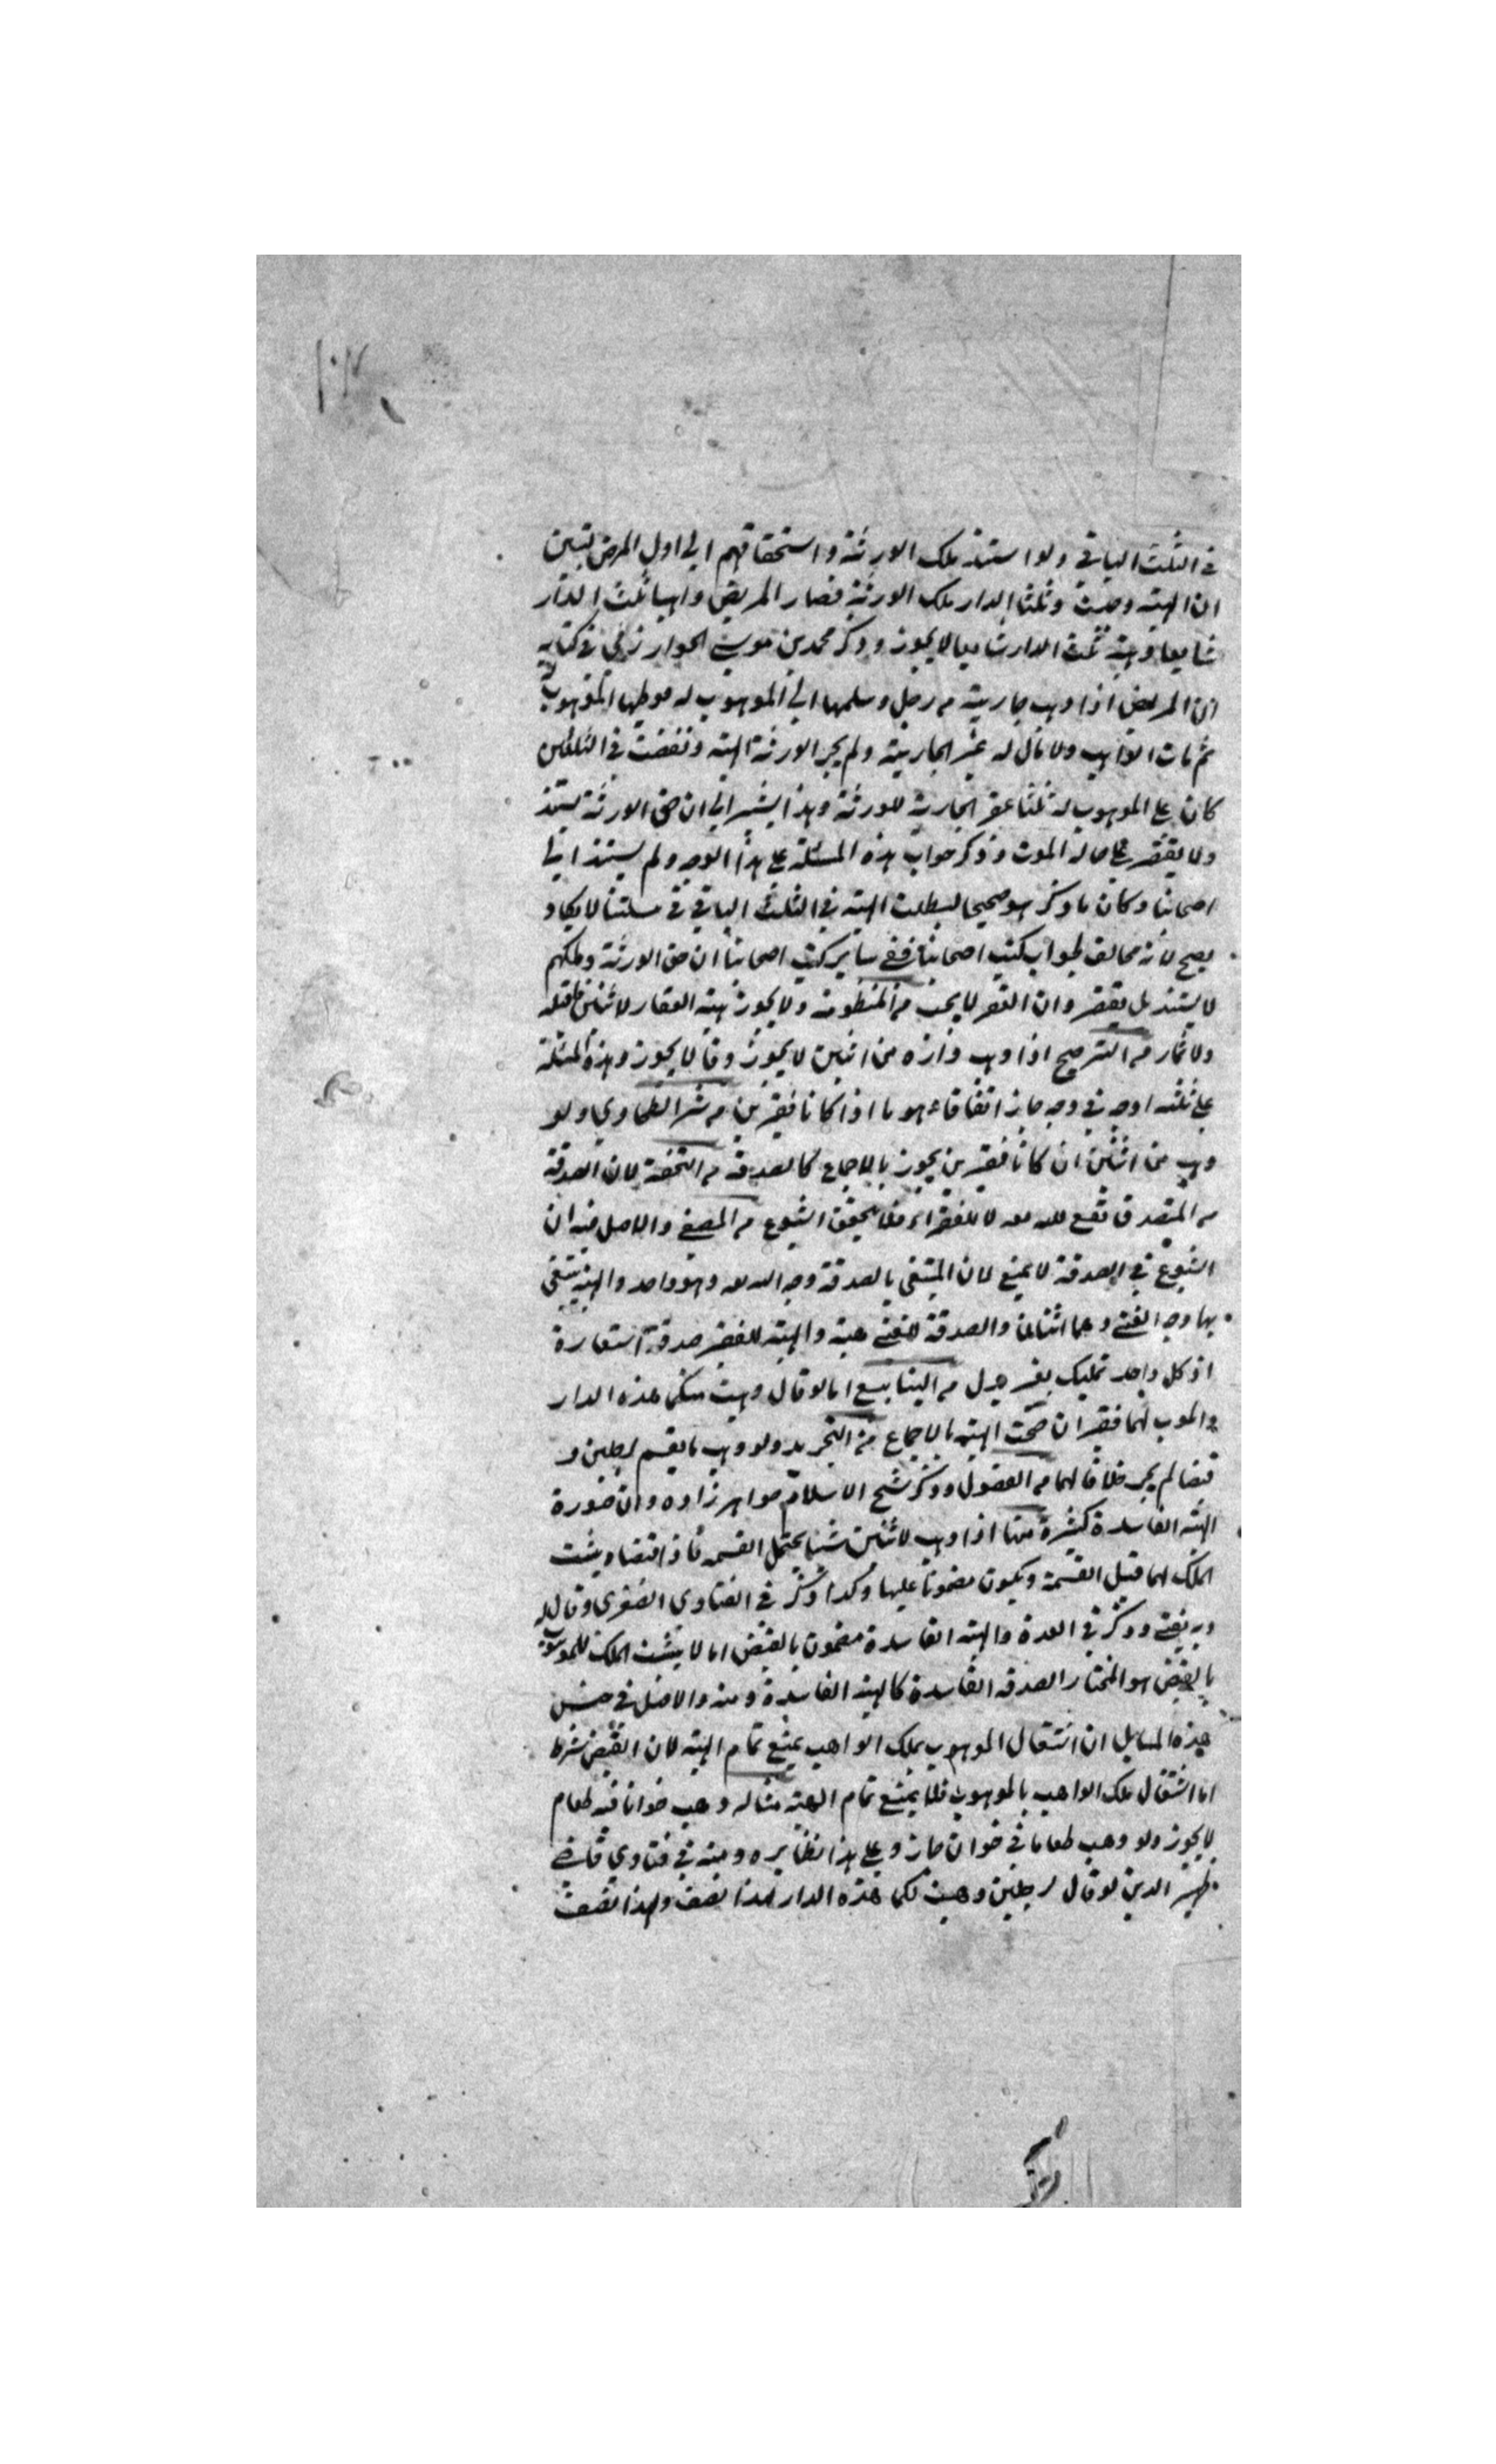 في الثلث الباقي ولو استند ملك الورثة واستحقاقهم الي اول المرض تبين
ان الهبة وصيت وثلثا الدار ملك الورثة فصار المريض واهبا ثلث الدار
شايعا وهبة ثلث الدار شايعا لا يجوز وذكر محمد بن موسى الخوارزمي في كتابه
ان المريض اذا وهب جارية من رجل وسلمها الي الموهوب له فوطيها الموهوب له
ثم مات الواهب ولا مال له غير الجارية ولم يجز الورثة الهبة ونقضت في الثلثين
كان علي الموهوب له ثلثا عقر الجارية للورثة وهذا يشير الي ان حق الورثة يستند
ولا يقتصر علي حالة الموت وذكر جواب هذه المسئلة علي هذا الوجه ولم يستند الي
اصحابنا وكان ما ذكر هو صحيحا لبطلت الهبة في الثلث الباقي في مسئلتنا لا يكاد
يصح لانه مخالف لجواب كتب اصحابنا ففي ساير كتب اصحابنا ان حق الورثة وملكهم
لا يستند بل يقتصر وان العقر لا يجب من المنظومة ولا يجوز هبة العقار لاثنين
ولا ثمار من الترجيح اذا وهب داره من اثنين لا يجوز وقالا يجوز وهذه المسئلة
علي ثلثه اوجه في وجه جاز اتفاقا هو ما اذا كانا فقيرين من شرح الطحاوي ولو
وهب من اثنين ان كانا فقيرين يجوز بالاجماع كالصدقة من التحفة لان الصدقة
من المتصدق تقع لله تعه لا للفقراء فلا يتحقق الشيوع من المصفي والاصل فيه ان
الشيوع في الصدقة لا يمنع لان المبتغي بالصدقة وجه الله تعه وهو واحد والهبة يبتغي
بها وجه الغني وهما اثنان والصدقة للغني هبة والهبة للفقير صدقة استعارة
اذ كل واحد تمليك بغير بدل من الينابيع اما لو قال وهبت منكما هذه الدار
والموهب لهما فقيران صحت الهبة بالاجماع من التجريد ولو وهب ما يقسم لرجلين و
قبضا لم يجز خلافا لهما من الفصول وذكر شيخ الاسلام خواهر زاده وان صورة
الهبة الفاسدة كثيرة منها اذا وهب لاثنين شيئا يحتمل القسمة فاذا قبضا ويثبت
الملك لهما قبل القسمة ويكون مضمونا عليها وكذا ذكر في الفتاوي الصغرى وقال
وبه يفتي وذكر في العدة والهبة الفاسدة مضمون بالقبض اما لا يثبت الملك للموهوب له
بالقبض هو المختار الصدقة الفاسدة كالهبة الفاسدة ومنه والاصل في جنس
هذه المسايل ان اشتغال الموهوب بملك الواهب يمنع تمام الهبة لان القبض شرط
اما اشتغال ملك الواهب بالموهوب فلا يمنع تمام الهبة مثاله وهب خوانا فيه طعام
لا يجوز ولو وهب طعاما في خوان جاز وعلي هذا نظايره ومنه في فتاوي قاضي
ظهير الدين لو قال لرجلين وهبت لكما هذه الدار لهذا نصف ولهذا نصف